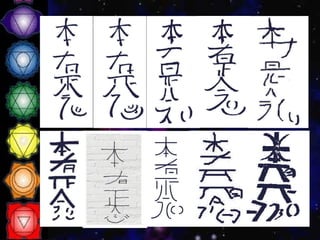 本者是正念
本者是正念
本者是正念
本者是正念
本者是正念
本者是正念
本者是正念
本者是正念